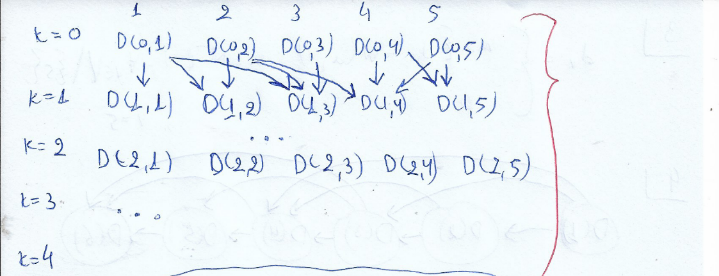 1 2 3 4 5
k=0 D(0,1) D(0,2) D(0,3) D(0,4) D(0,5)
k=1 D(1,1) D(1,2) D(1,3) D(1,4) D(1,5)
...
k=2 D(2,1) D(2,2) D(2,3) D(2,4) D(2,5)
k=3 ...
k=4